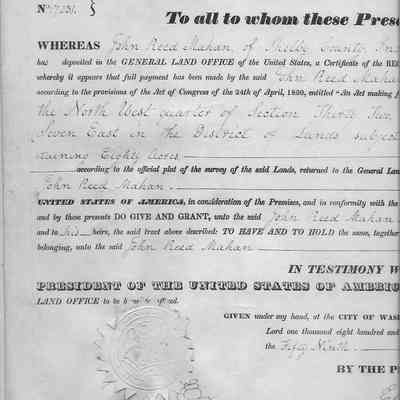 To all to whom these Prese
WHEREAS John Reed Mahan, of Shelby County, Ind
has deposited in the GENERAL LAND OFFICE of the United States, a Certificate of the RE
whereby it appears that full payment has been made by the said John Reed Mahan
according to the provisions of the Act of Congress of the 24th of April, 1820, entitled "An Act making f
the North West quarter of Section Thirty
Seven East in the District of Lands subject
taining Eighty acres
according to the official plat of the survey of the said Lands, returned to the General Lan
John Reed Mahan
UNITED STATES OF AMERICA, in consideration of the Premises, and in conformity with the
and by these presents DO GIVE AND GRANT, unto the said John Reed Mahan
and to his heirs, the said tract above described: TO HAVE AND TO HOLD the same, together
belonging, unto the said John Reed Mahan
IN TESTIMONY W
PRESIDENT OF THE UNITED STATES OF AMERIC
LAND OFFICE to be hereunto affixed.
GIVEN under my hand, at the CITY OF WAS
Lord one thousand eight hundred and
the Fifty Ninth
BY THE P
By